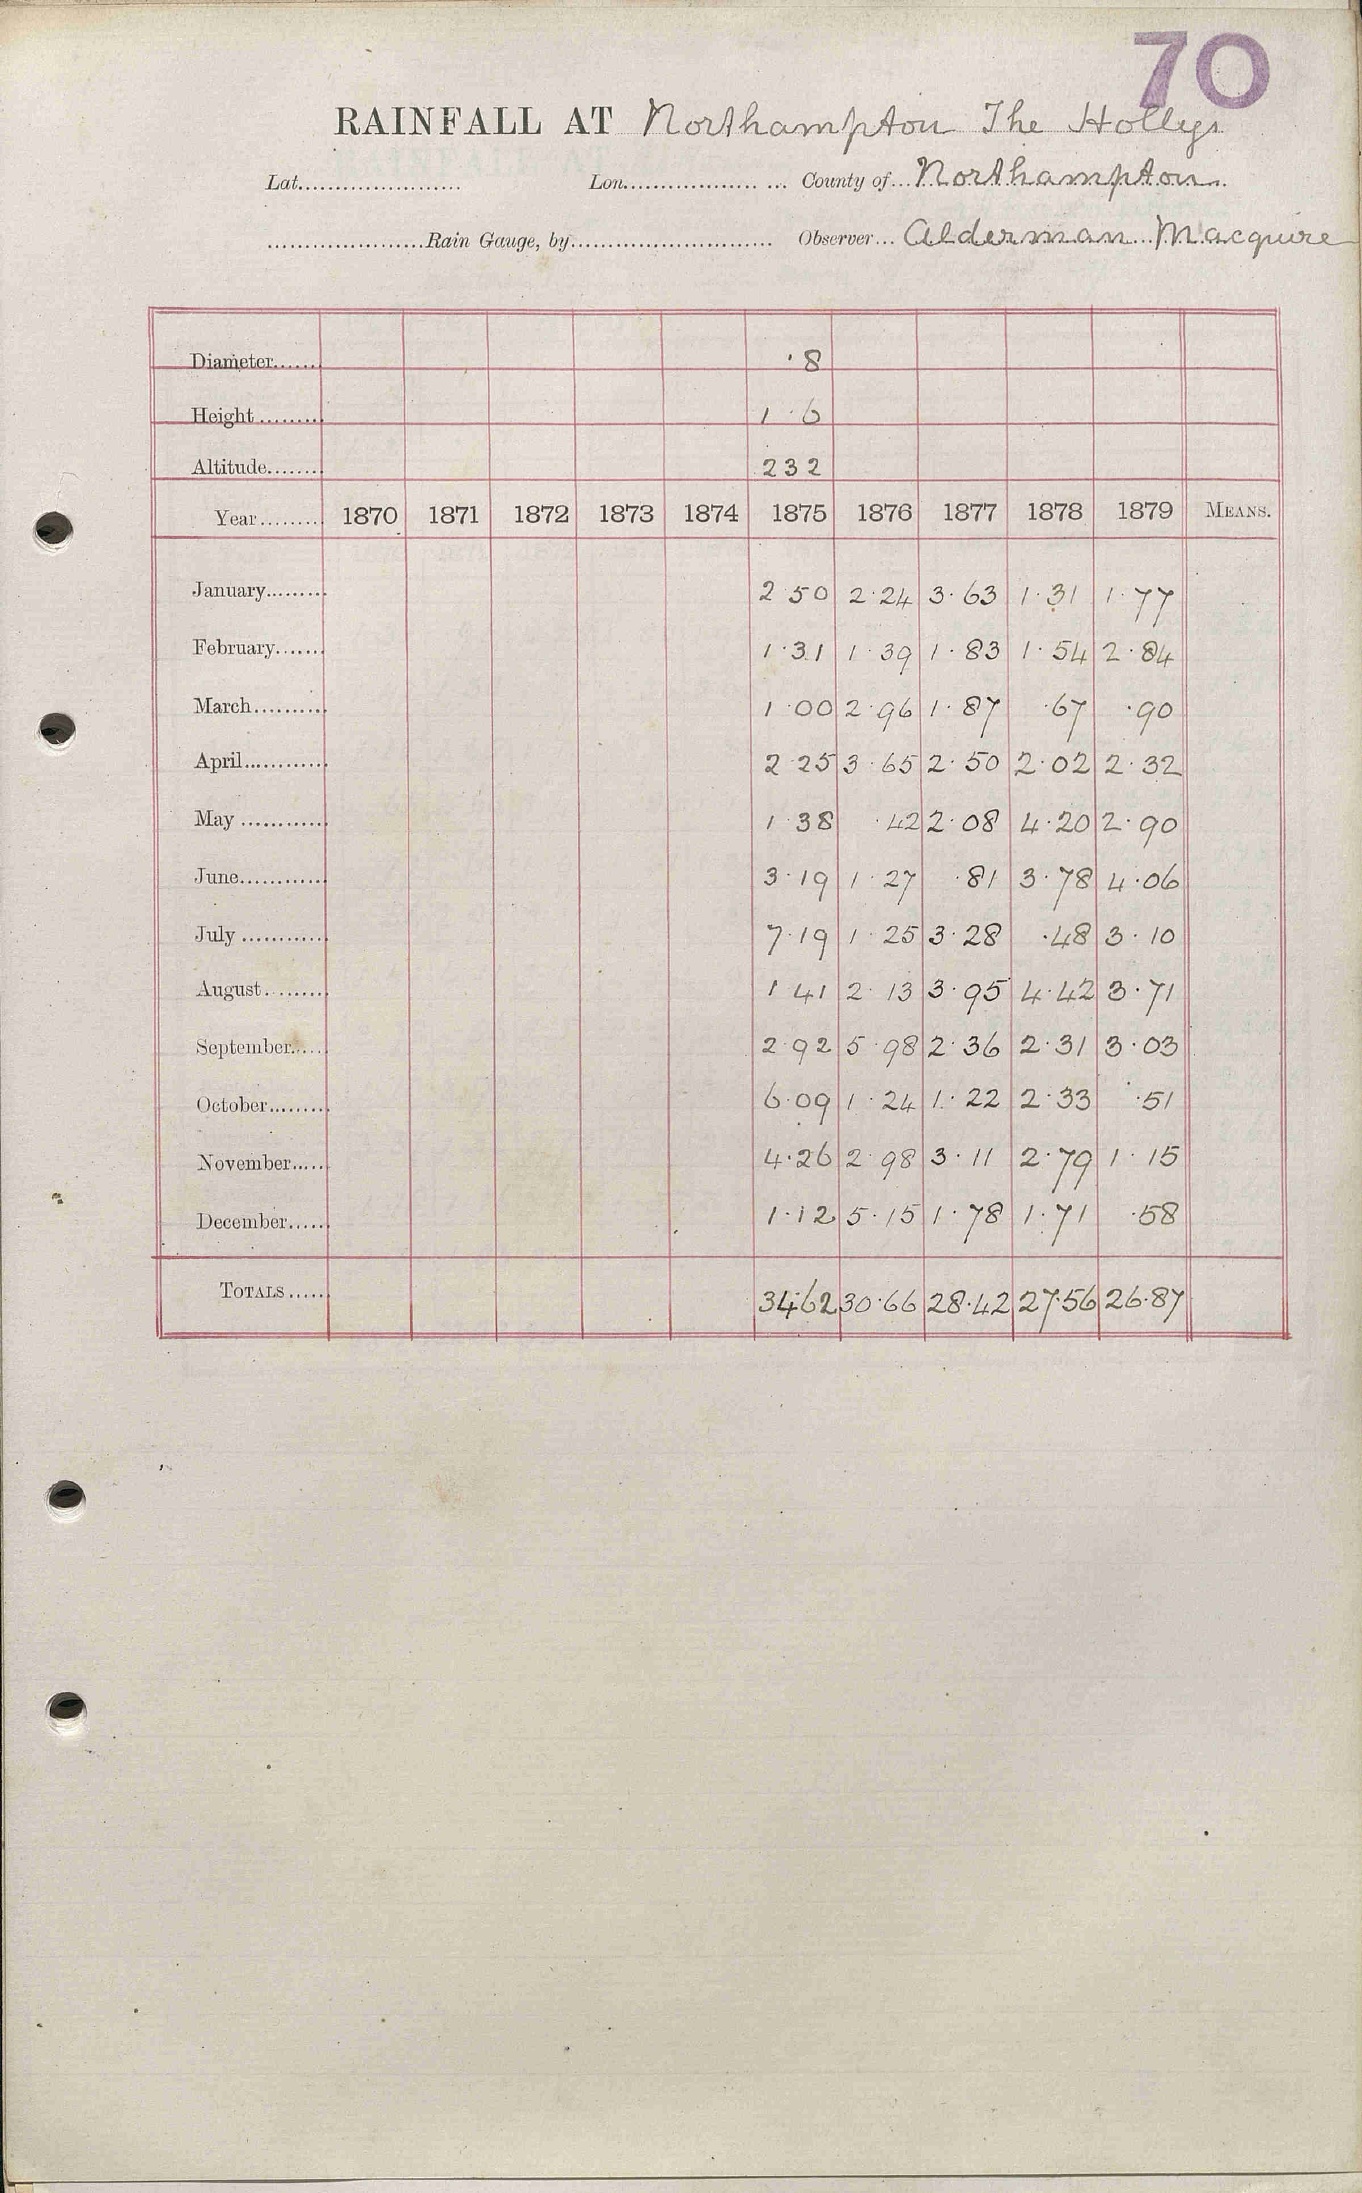 70
RAINFALL AT Northampton The Hollys
Lat...................... Lon................... ... County of... Northampton
.....................Rain Gauge, by........................... Observer... Alderman Macquire
Diameter....... ·8
Height ......... 1·6
Altitude........ 232
Year......... 1870 1871 1872 1873 1874 1875 1876 1877 1878 1879 MEANS.
January......... 2·50 2·24 3·63 1·31 1·77
February....... 1·31 1·39 1·83 1·54 2·84
March.......... 1·00 2·96 1·87 ·67 ·90
April............ 2·25 3·65 2·50 2·02 2·32
May ............ 1·38 ·42 2·08 4·20 2·90
June............ 3·19 1·27 ·81 3·78 4·06
July ............ 7·19 1·25 3·28 ·48 3·10
August......... 1·41 2·13 3·95 4·42 3·71
September...... 2·92 5·98 2·36 2·31 3·03
October......... 6·09 1·24 1·22 2·33 ·51
November...... 4·26 2·98 3·11 2·79 1·15
December...... 1·12 5·15 1·78 1·71 ·58
TOTALS ..... 34·62 30·66 28·42 27·56 26·87